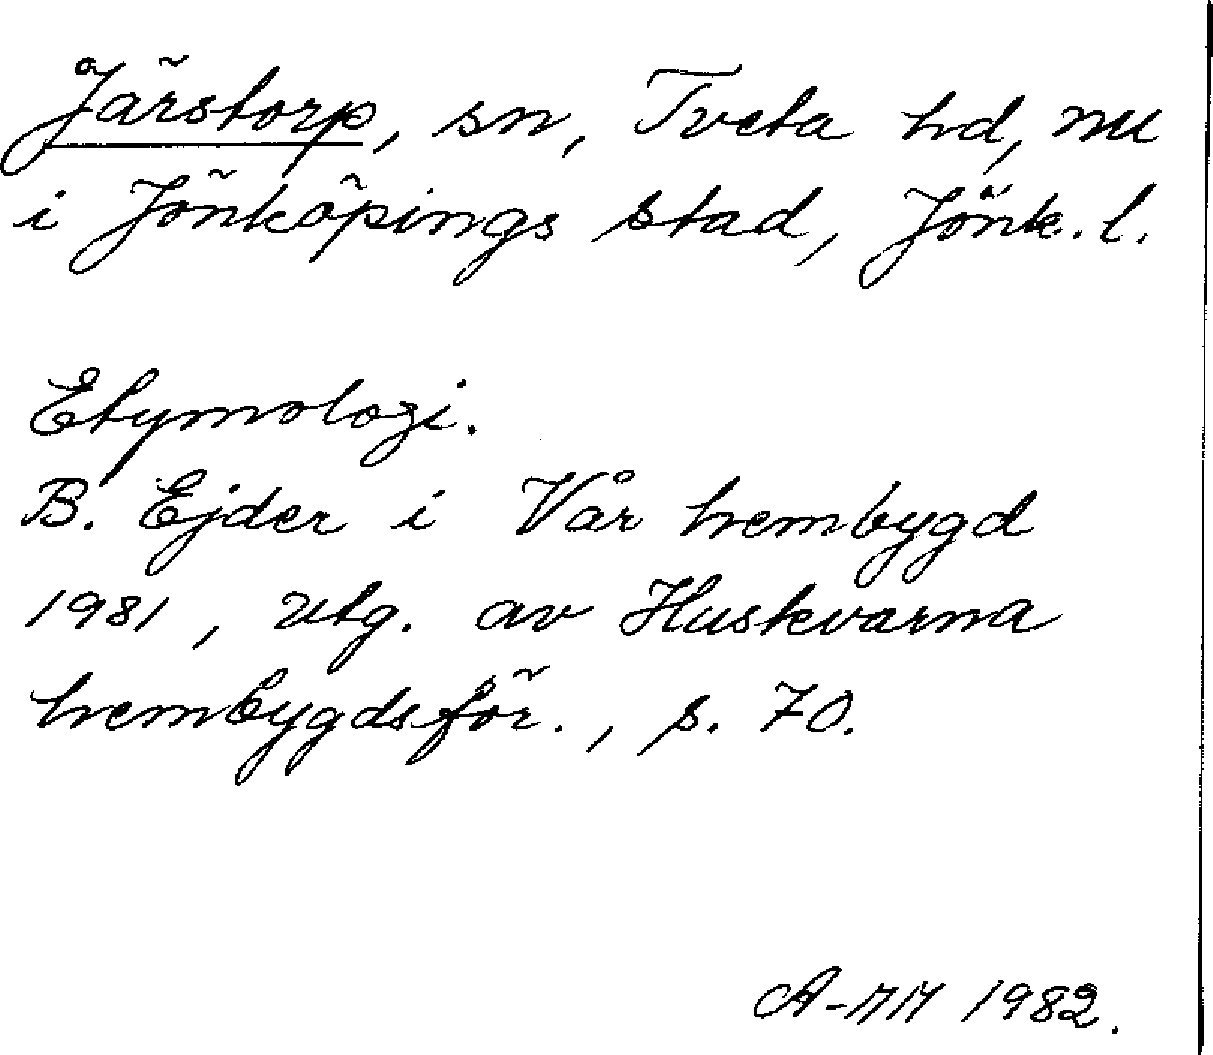 Järstorp, sn, Tveta hd, nu
i Jönköpings stad, Jönk. l.
Etymologi.
B. Ejder i Vår hembygd
1981, utg. av Huskvarna
hembygdsför., s. 70.
A-MM 1982.